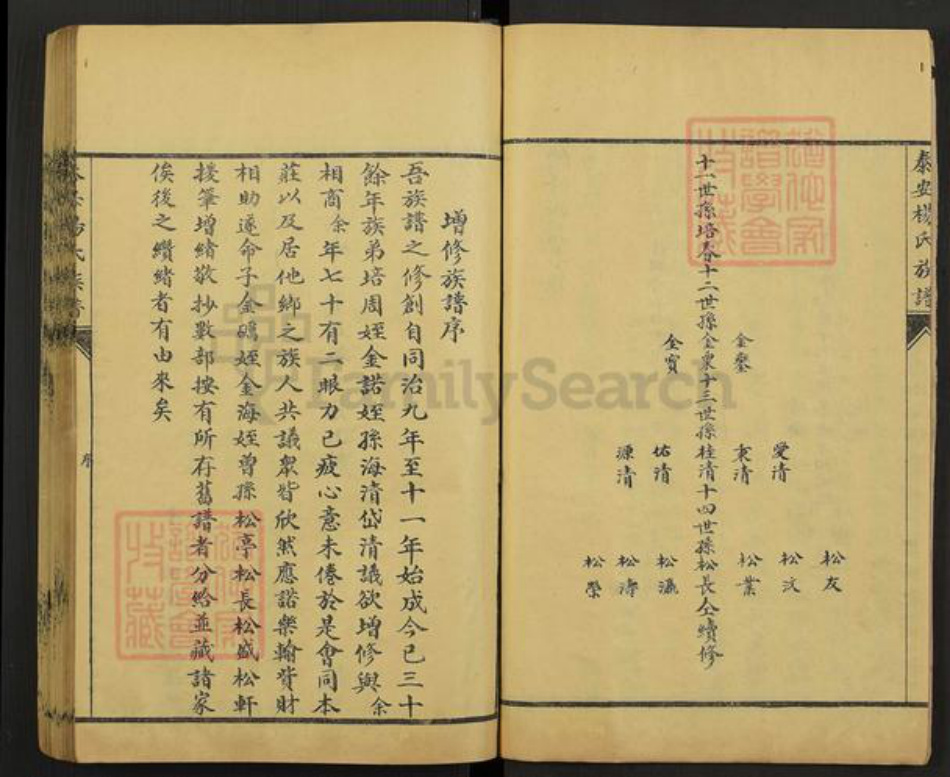 泰安楊氏族譜
松友
愛清 松汶
金鏊 秉清 松業
十一世孫培春十二世孫金泉十三世孫桂清十四世孫松長仝續修
金寶 佑清 松瀛
源清 松濤
松榮
增修族譜序
吾族譜之修創自同治九年至十一年始成今已三十
餘年族弟培周姪金諾姪孫海清岱清議欲增修與余
相商余年七十有二眼力已疲心意未倦於是會同本
莊以及居他鄉之族人共議眾皆欣然應諾樂輸資財
相助遂命子金鴎姪金海姪曾孫松亭松長松盛松軒
援筆增緒敬抄數部按有所存舊譜者分給並藏諸家
俟後之纘緒者有由來矣
序
FamilySearch